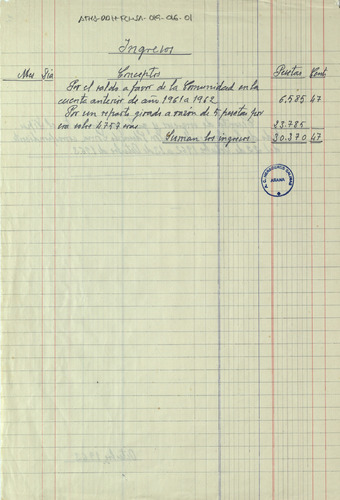 Ingresos
Mes Día Conceptos Pesetas Cent
Por el saldo a favor de la Comunidad en la
cuenta anterior de año 1961 a 1962 6,585 47
Por un reparto girado a razón de 5 pesetas por
era sobre 4757 eras 23.785
Suman los ingresos 30.370 47